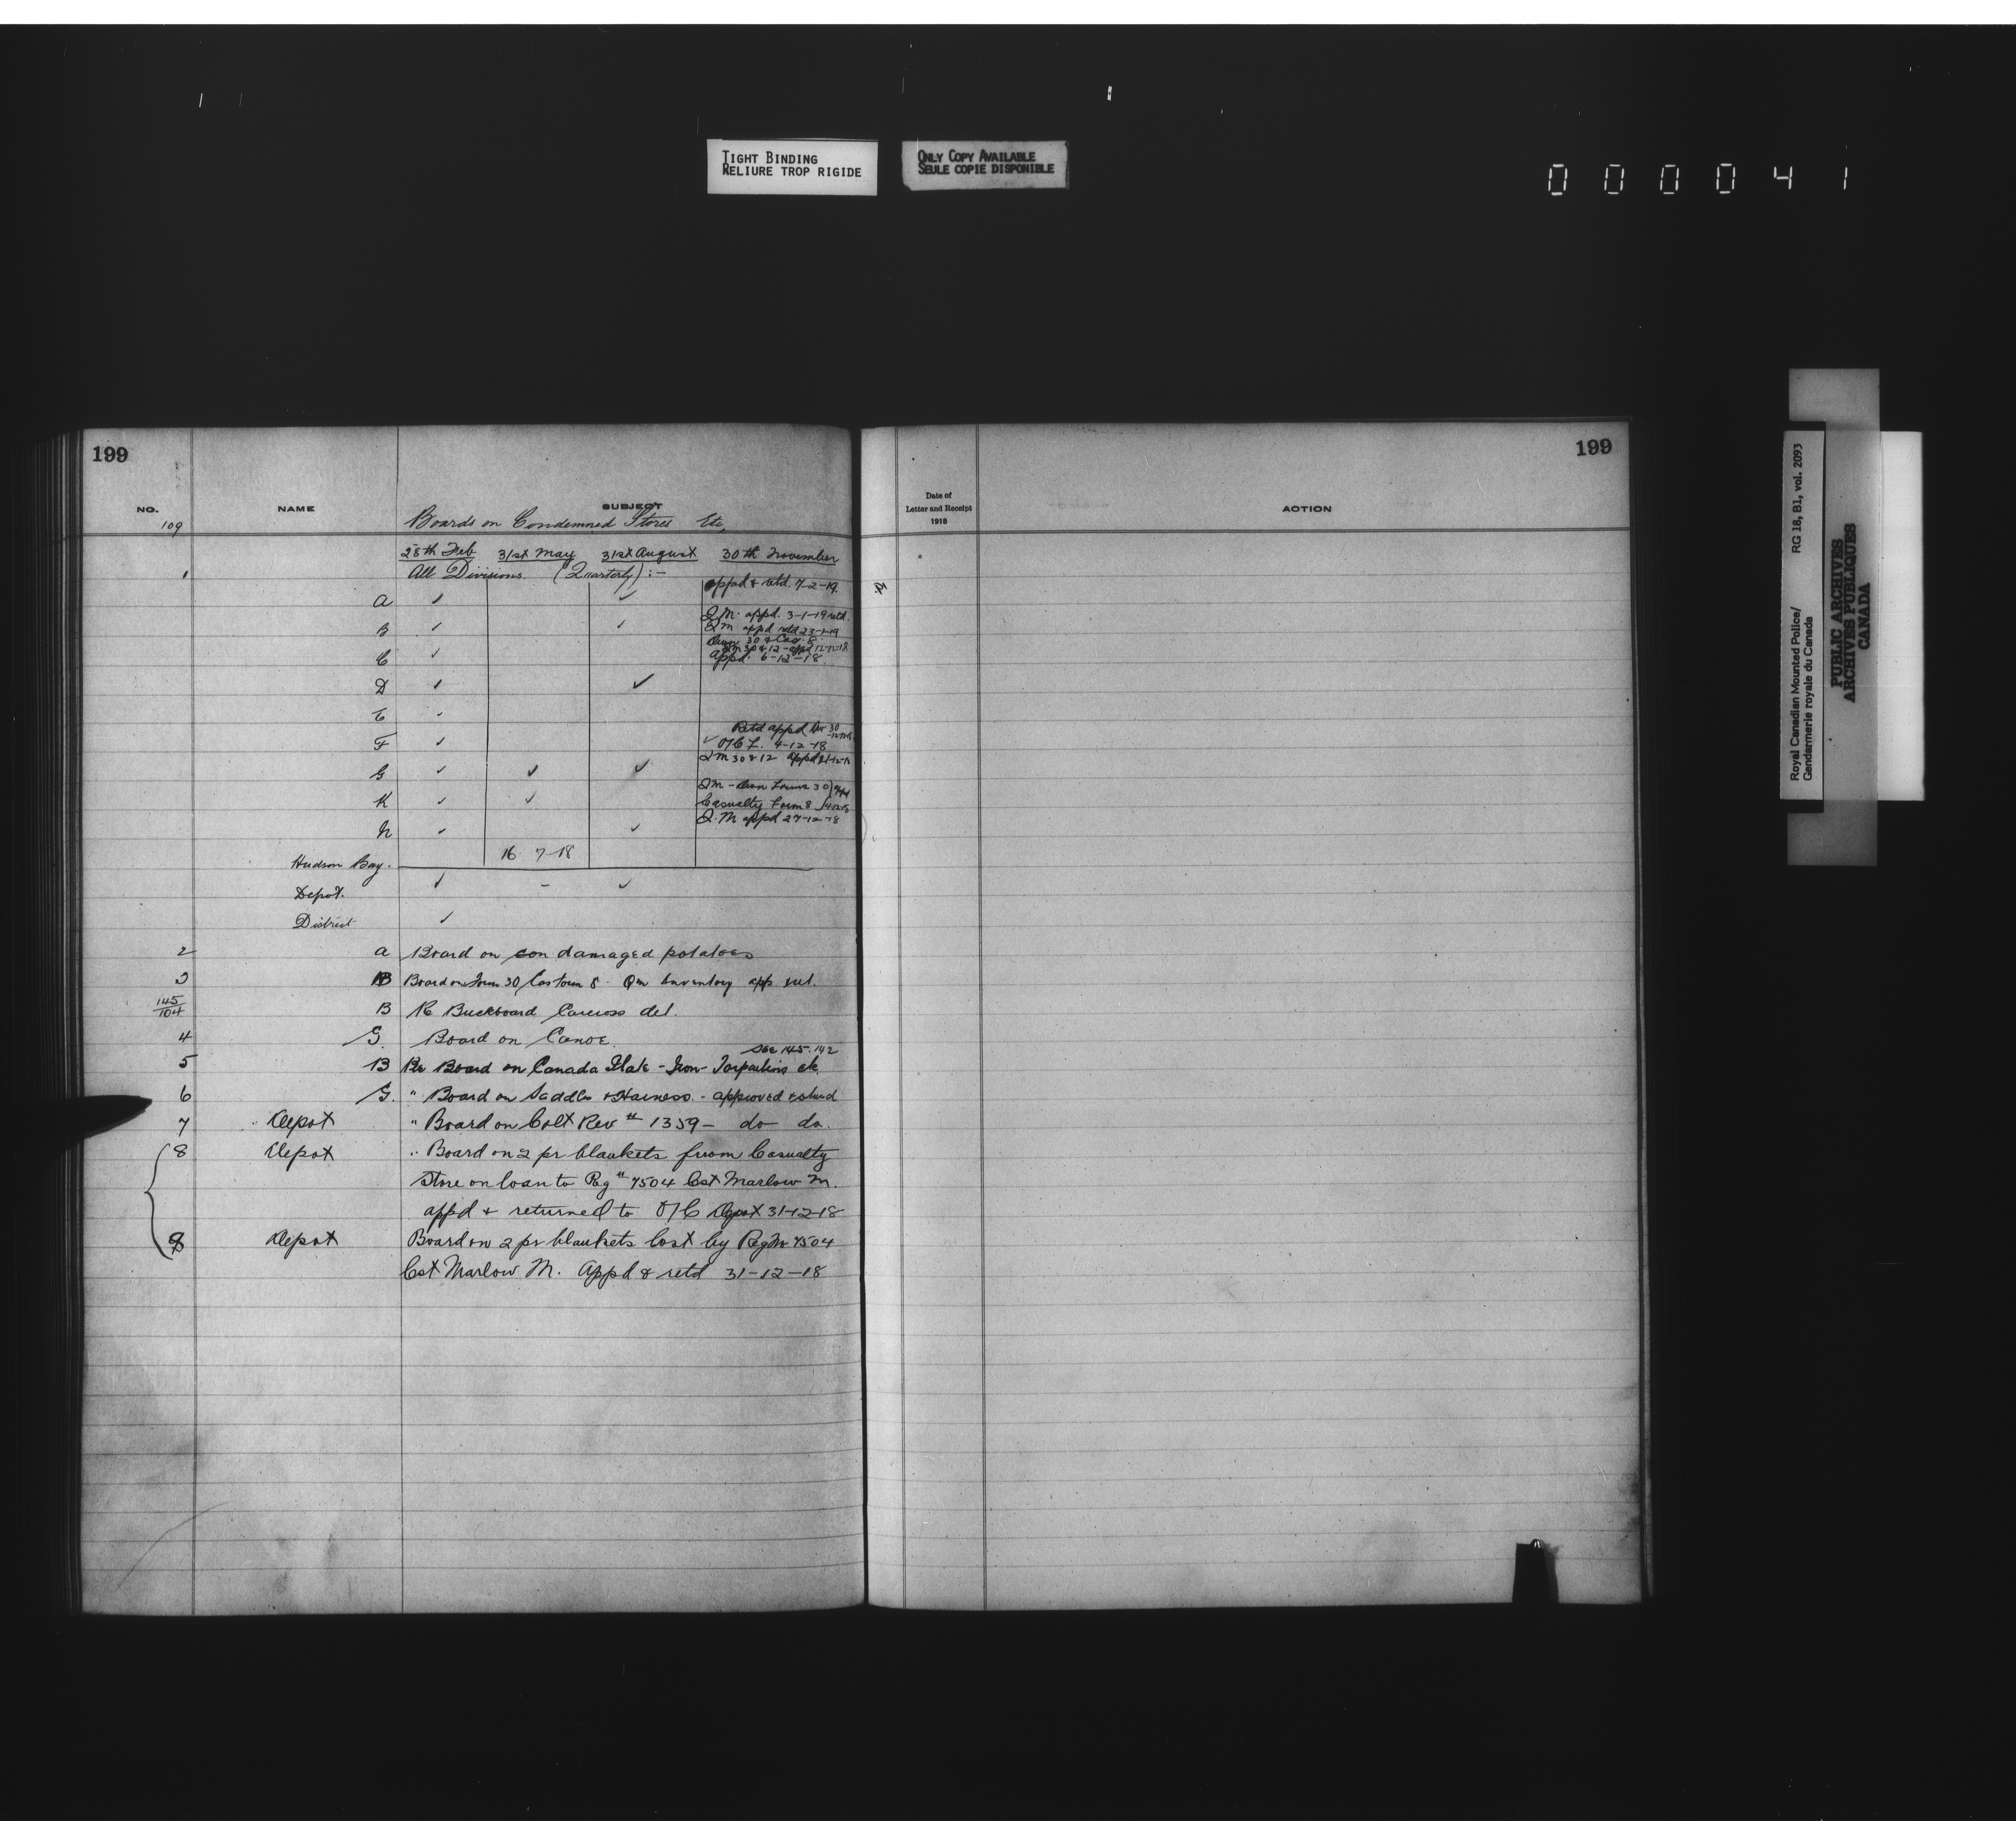 TIGHT BINDING
RELIURE TROP RIGIDE
ONLY COPY AVAILABLE
SEULE COPIE DISPONIBLE
000041
199
NO. NAME SUBJECT
109 Boards on Condemned Stores Etc,
28th Feb 31st May 31st August 30th November
1 All Divisions. (Quarterly):-
appd & retd. 7-2-19.
A ✓ ✓
Q.M. appd. 3-1-19 retd.
B ✓ ✓ QM appd retd 23-1-19
30 & Cas. 8
C ✓ QM 30 & 12 - appd 12-12-18
Appd. 6-12-18
D ✓ ✓
E ✓
Retd appd 30
F ✓ ✓ O/C F. 4-12-18
QM 30 & 12 appd 21-12-18
G ✓ ✓ ✓
QM - Form 30
K ✓ ✓ Casualty Form 8
Q.M appd 27-12-18
N ✓ ✓
Hudson Bay. 16 7-18
Depot. ✓ - ✓
District ✓
2 A Board on damaged potatoes
3 B Board on Form 30 Cas Form 8 - Qm Inventory app ret.
145/104 B Re Buckboard Carcross det.
4 G. Board on Canoe.
See 145.142
5 B Re Board on Canada Plate - Iron - Tarpaulins etc
6 G. " Board on Saddles & Harness. - approved & retund
7 Depot " Board on Colt Rev # 1359 - do do.
8 Depot " Board on 2 pr blankets from Casualty
Store on loan to Reg # 7504 Cst Marlow M.
appd & returned to O/C Depot 31-12-18
9 Depot Board on 2 pr blankets lost by Reg No 7504
Cst Marlow M. Appd & retd 31-12-18
199
Date of
Letter and Receipt
1918
ACTION
Royal Canadian Mounted Police/
Gendarmerie royale du Canada
RG 18, B1, vol. 2093
PUBLIC ARCHIVES
ARCHIVES PUBLIQUES
CANADA